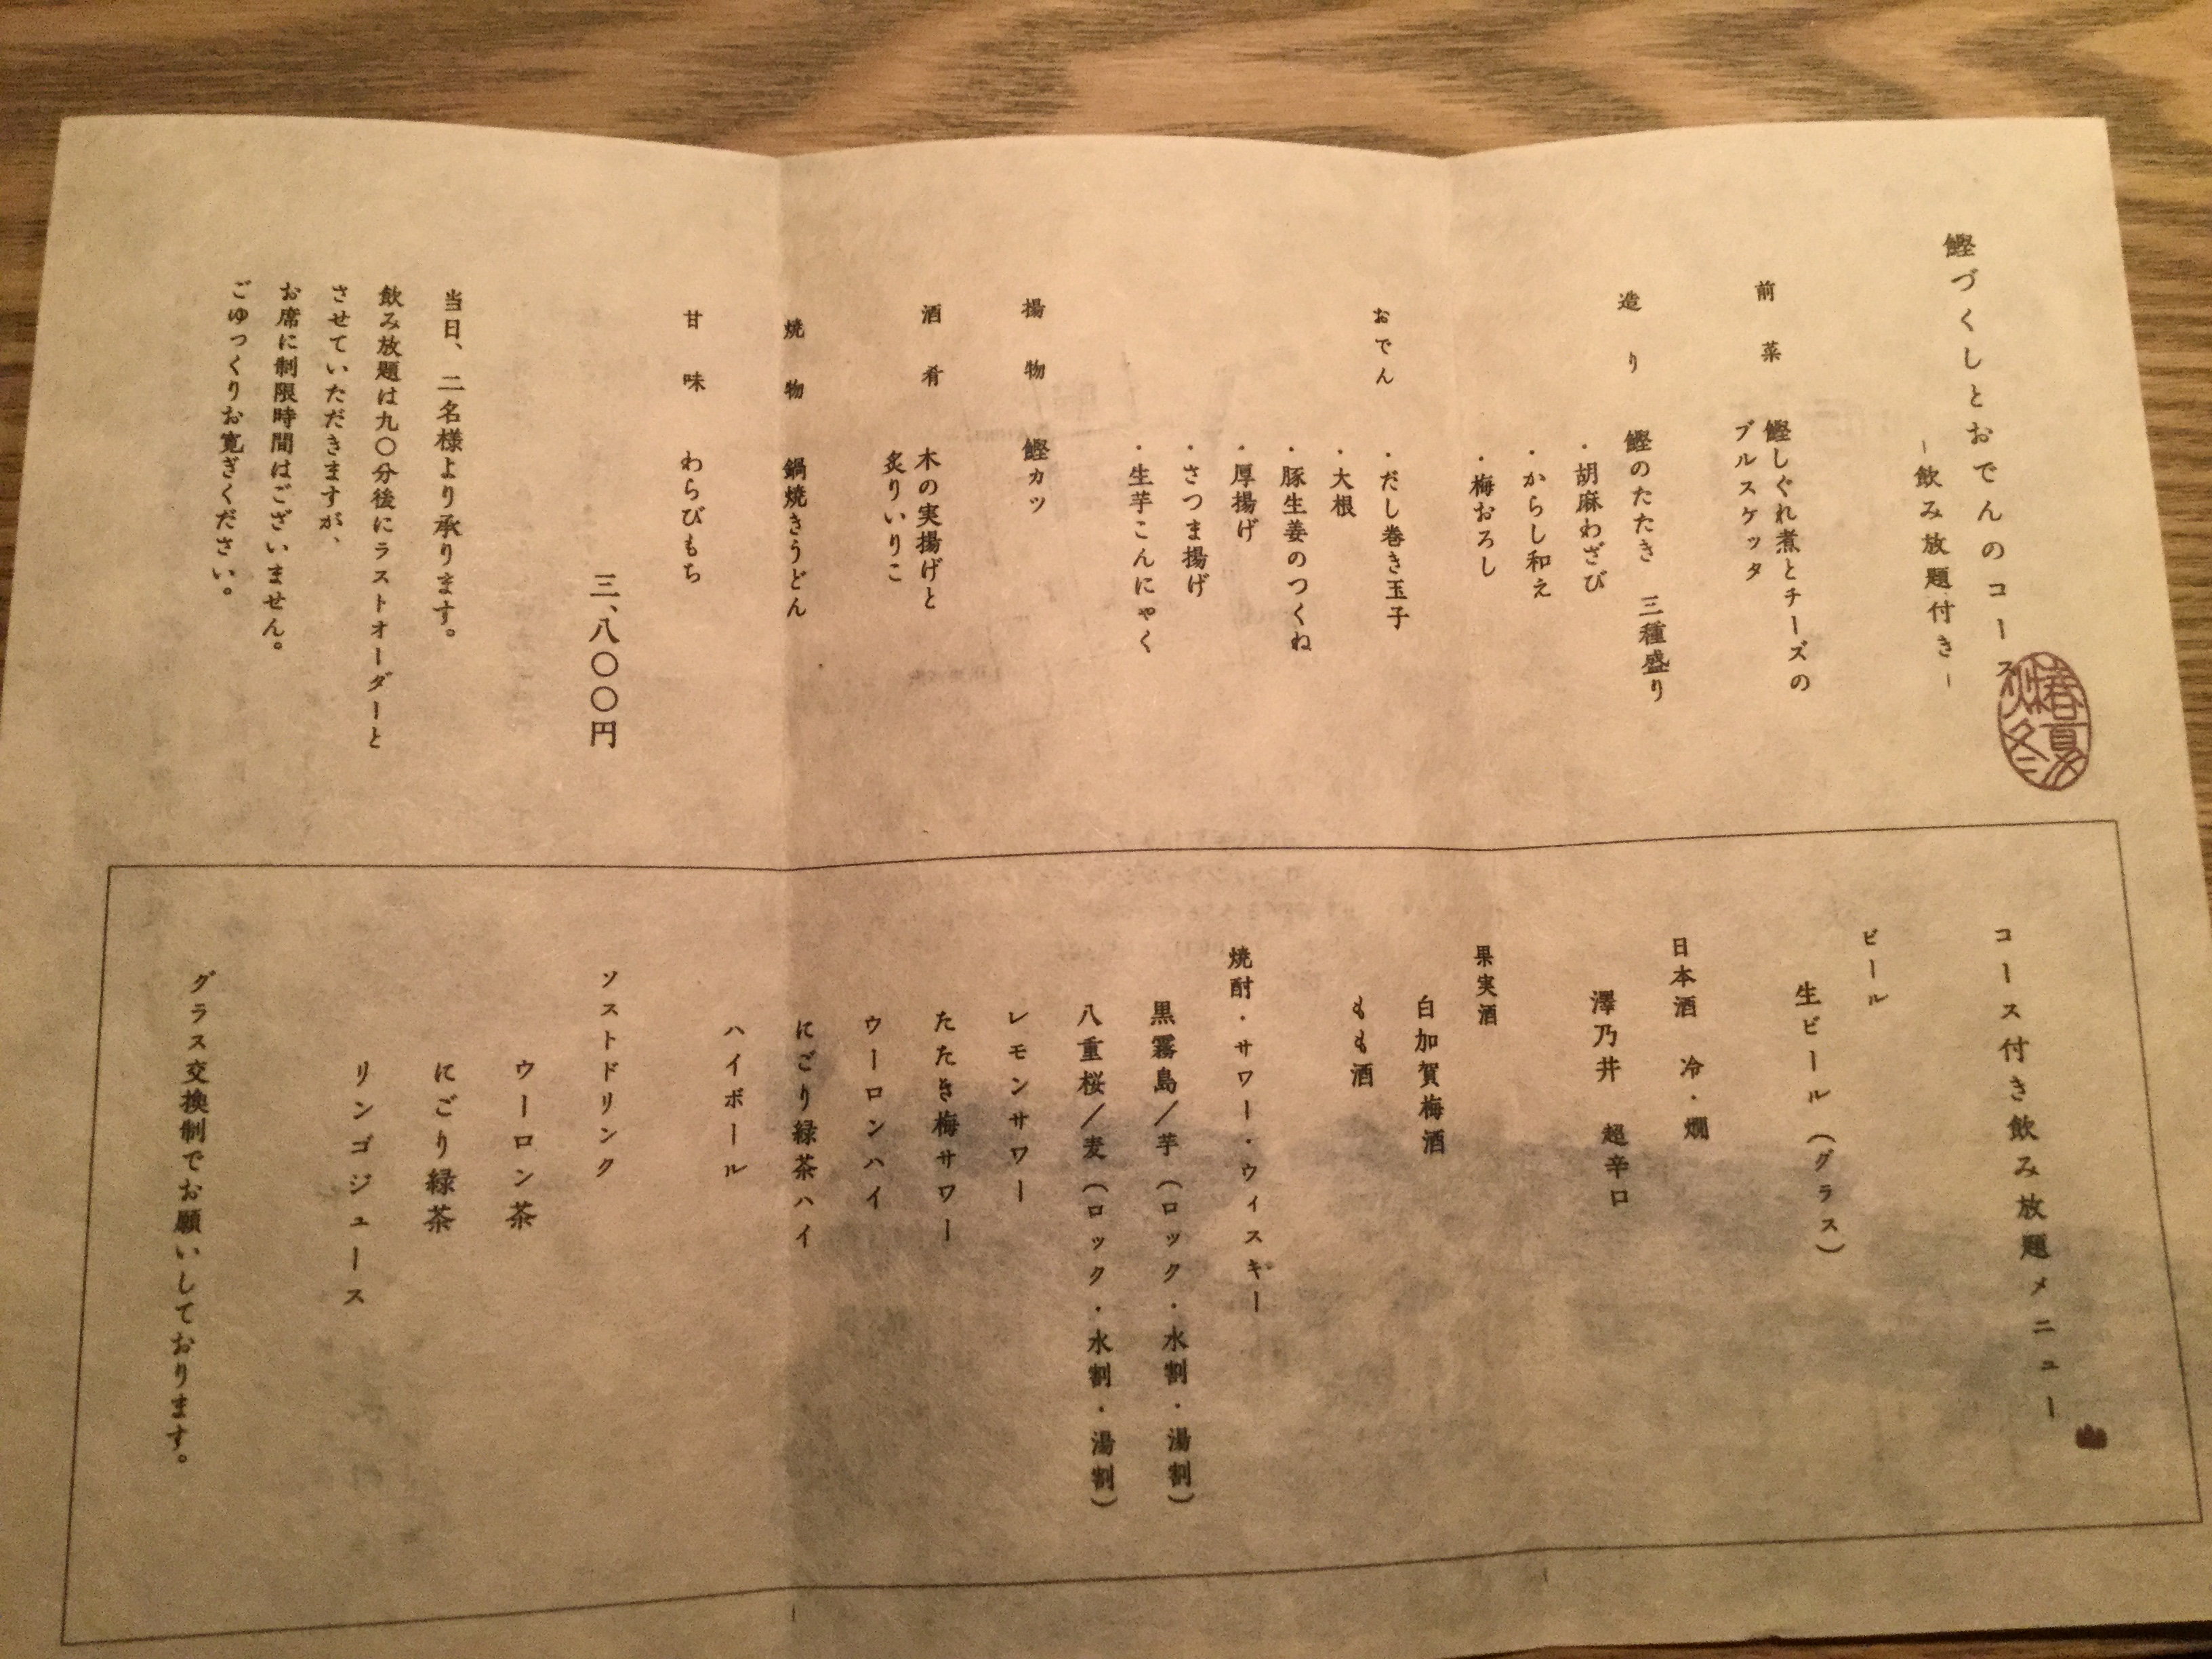 鰹づくしとおでんのコース
-飲み放題付き-
春夏秋冬
前菜 鰹しぐれ煮とチーズの
ブルスケッタ
造り 鰹のたたき 三種盛り
・胡麻わさび
・からし和え
・梅おろし
おでん ・だし巻き玉子
・大根
・豚生姜のつくね
・厚揚げ
・さつま揚げ
・生芋こんにゃく
揚物 鰹カツ
酒肴 木の実揚げと
炙りいりこ
焼物 鍋焼きうどん
甘味 わらびもち
三、八〇〇円
当日、二名様より承ります。
飲み放題は九〇分後にラストオーダーと
させていただきますが、
お席に制限時間はございません。
ごゆっくりお寛ぎください。
コース付き飲み放題メニュー
ビール
生ビール(グラス)
日本酒 冷・燗
澤乃井 超辛口
果実酒
白加賀梅酒
もも酒
焼酎・サワー・ウィスキー
黒霧島/芋(ロック・水割・湯割)
八重桜/麦(ロック・水割・湯割)
レモンサワー
たたき梅サワー
ウーロンハイ
にごり緑茶ハイ
ハイボール
ソストドリンク
ウーロン茶
にごり緑茶
リンゴジュース
グラス交換制でお願いしております。